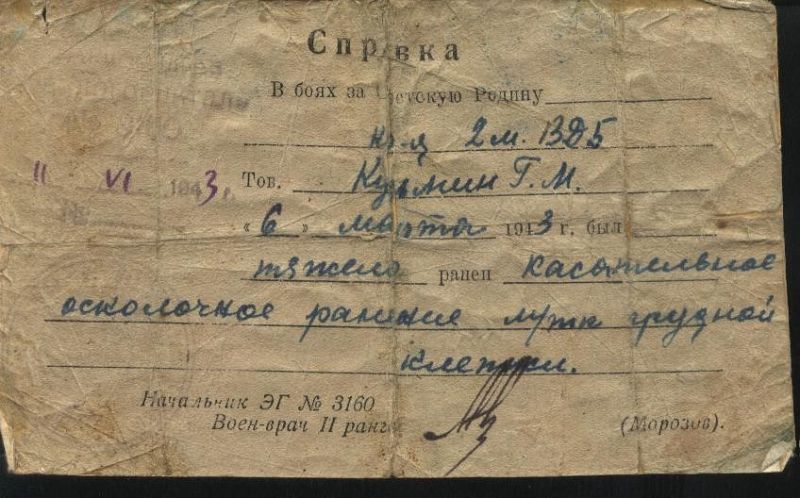 Справка
В боях за Советскую Родину
2м. ВДБ
" VI 1943 г.
Тов. Кузмин Г. М.
№
« 6 » марта 1943 г. был
тяжело ранен касательное
осколочное ранение м/тк грудной
клетки.
Начальник ЭГ № 3160
Воен-врач II ранга
(Морозов).